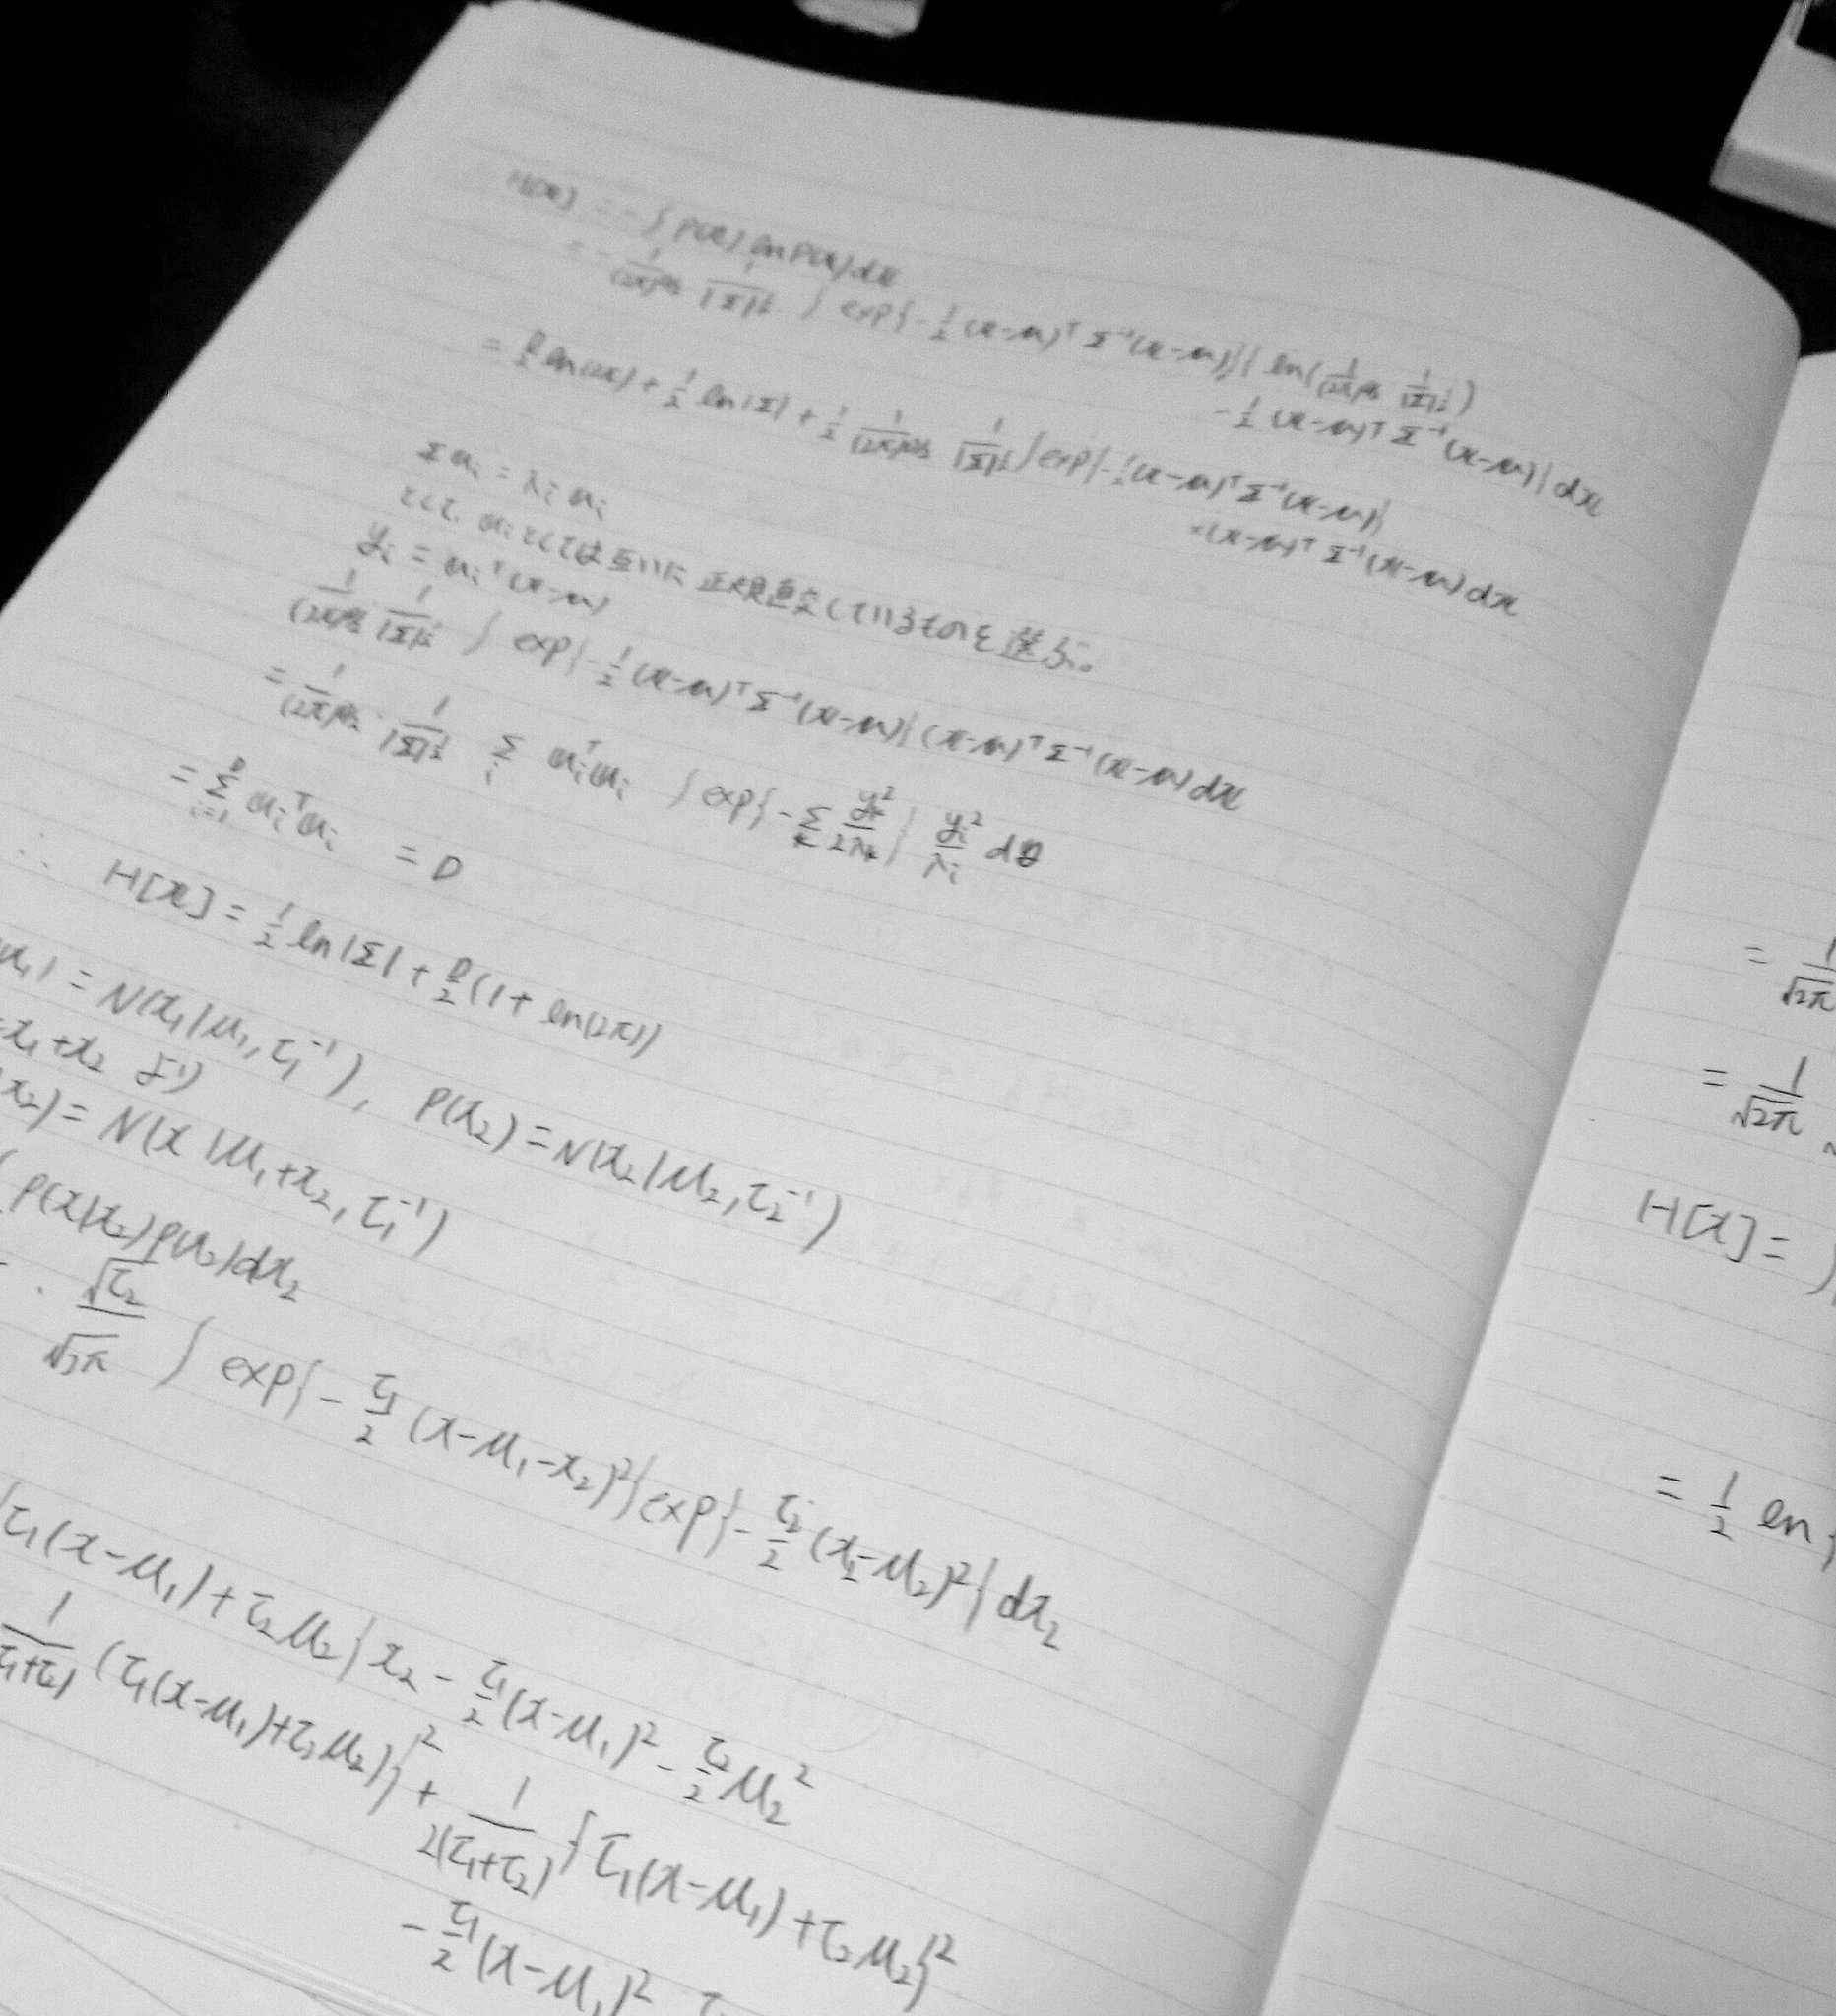 H[x] = -∫ p(x) ln p(x) dx
= - 1/(2π)^{D/2} 1/|Σ|^{1/2} ∫ exp{-1/2 (x-μ)^T Σ^{-1} (x-μ)}{ ln( 1/(2π)^{D/2} 1/|Σ|^{1/2} )
-1/2 (x-μ)^T Σ^{-1} (x-μ)} dx
= D/2 ln(2π) + 1/2 ln|Σ| + 1/2 1/(2π)^{D/2} 1/|Σ|^{1/2} ∫ exp{-1/2 (x-μ)^T Σ^{-1} (x-μ)}
×(x-μ)^T Σ^{-1} (x-μ) dx
Σ u_i = λ_i u_i
として. u_i としては互いに正規直交しているものを選ぶ。
y_i = u_i^T (x-μ)
1/(2π)^{D/2} 1/|Σ|^{1/2} ∫ exp{-1/2 (x-μ)^T Σ^{-1} (x-μ)} (x-μ)^T Σ^{-1} (x-μ) dx
= 1/(2π)^{D/2} · 1/|Σ|^{1/2} Σ_i u_i^T u_i ∫ exp{-Σ_k y_k^2/2λ_k} y_i^2/λ_i dy
= Σ_{i=1}^D u_i^T u_i = D
∴ H[x] = 1/2 ln|Σ| + D/2 (1 + ln(2π))
= N(x_1|μ_1, τ_1^{-1}), p(x_2) = N(x_2|μ_2, τ_2^{-1})
= x_1 + x_2 より
x_2) = N(x|μ_1 + x_2, τ_1^{-1})
p(x|x_2) p(x_2) dx_2
· √τ_2/√2π ∫ exp{-τ_1/2 (x-μ_1-x_2)^2} exp{-τ_2/2 (x_2-μ_2)^2} dx_2
{τ_1(x-μ_1) + τ_2μ_2} x_2 - τ_1/2 (x-μ_1)^2 - τ_2/2 μ_2^2
1/(τ_1+τ_2) (τ_1(x-μ_1) + τ_2μ_2)}^2 + 1/2(τ_1+τ_2) {τ_1(x-μ_1) + τ_2μ_2}^2
- τ_1/2 (x-μ_1)^2
= 1/√2π
= 1/√2π
H[x] =
= 1/2 ln {